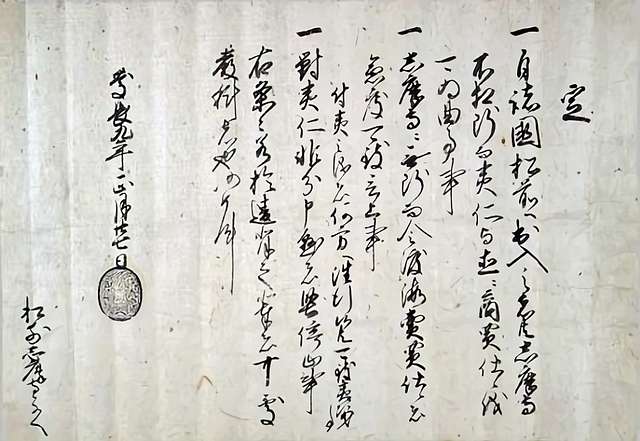 定
一 自諸國松前へ出入之者共志摩守
不相断而夷仁与直ニ商買仕候儀
可為曲事事
一 志摩守ニ無断而令渡海賣買仕候者
急度可致言上事
付夷之儀者何方へ往行候共可致夷次第事
一 對夷仁非分申懸者堅停止事
右条々若於違背之輩者可処
嚴科者也仍如件
慶長九年正月廿七日
松前志摩守とのへ